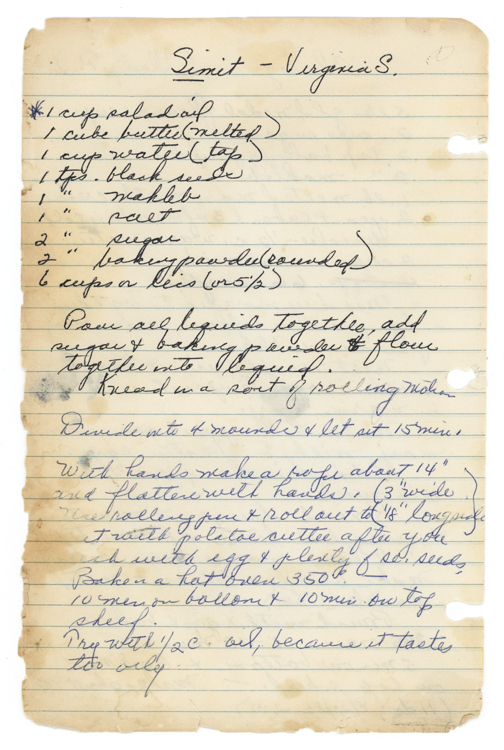 Simit – Virginia S.
*1 cup salad oil
1 cube butter (melted)
1 cup water (tap)
1 tps. black seeds
1 " mahleb
1 " salt
2 " sugar
2 " baking powder (rounded)
6 cups or less (or 5 1/2)
Pour all liquids together, add
sugar & baking powder & flour
together into liquid.
Knead in a sort of rolling motion
Divide into 4 mounds & let sit 15 min.
With hands make a rope about 14"
and flatten with hands. (3" wide
rolling pin & roll out to 18" long
t with potatoe cutter after you
with egg & plenty of se. seeds.
Bake in a hot oven 350° –
10 min on bottom & 10 min. on top
shelf.
Try with 1/2 c. oil, because it tastes
too oily.